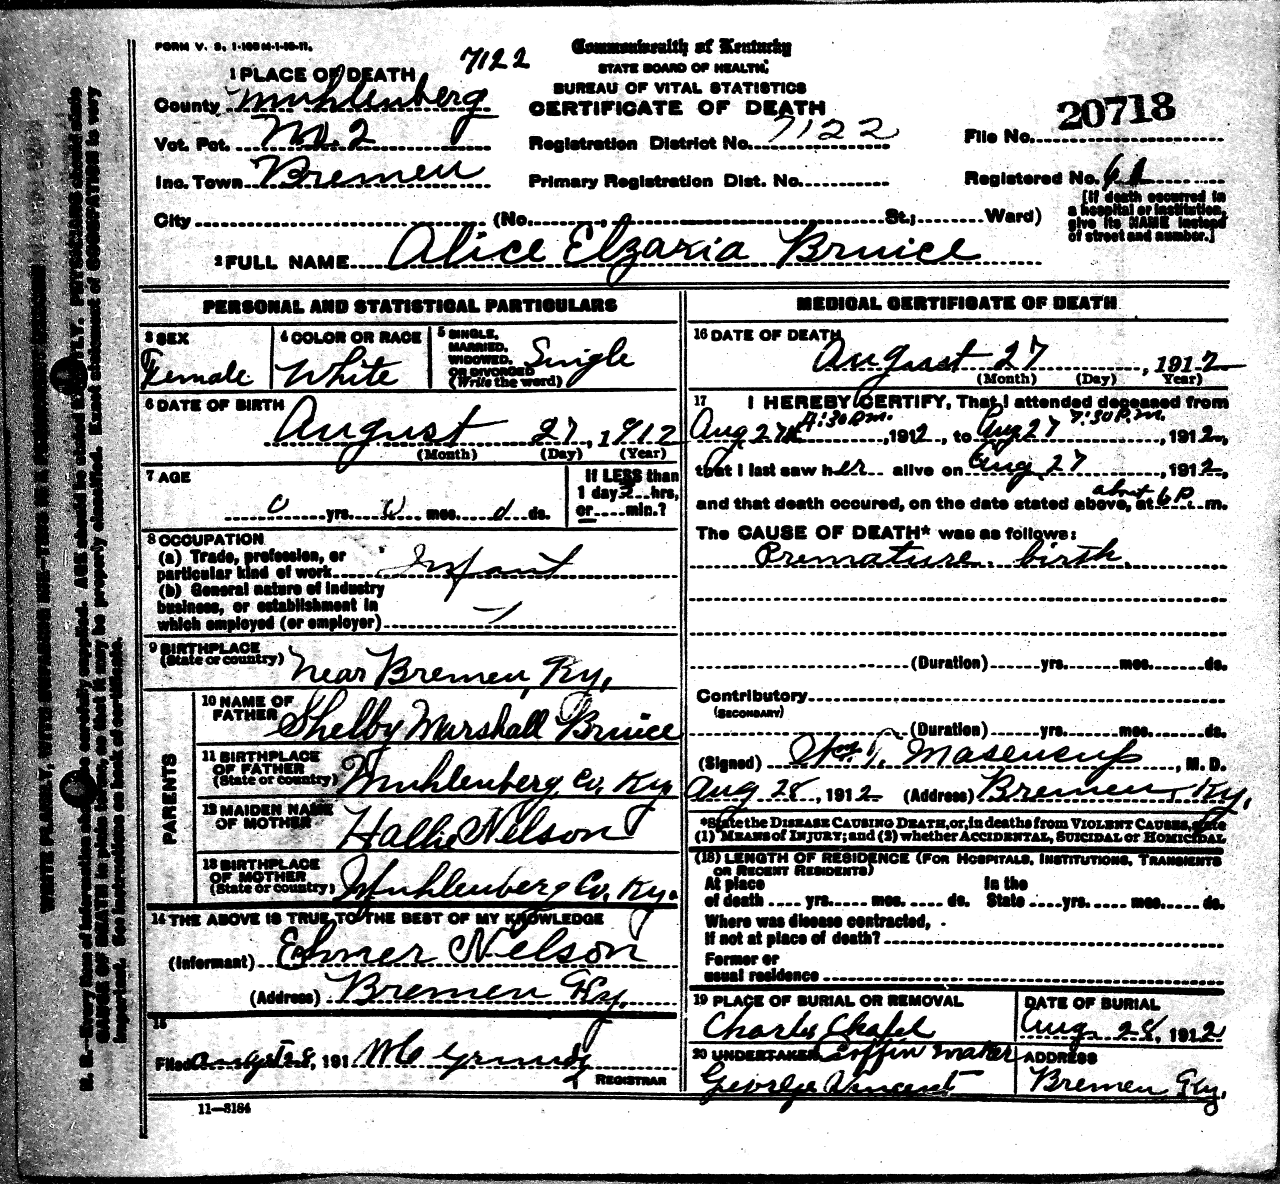 FORM V. S. 1-105 M-1-10-11.
Commonwealth of Kentucky
STATE BOARD OF HEALTH,
BUREAU OF VITAL STATISTICS
CERTIFICATE OF DEATH
7122
1 PLACE OF DEATH
County Muhlenberg
Vot. Pct. No. 2
Inc. Town Bremen
City (No. St.; Ward)
Registration District No. 7122
Primary Registration Dist. No.
File No. 20718
Registered No.
[If death occurred in
a hospital or institution,
give its NAME instead
of street and number.]
2 FULL NAME Alice Elzaxia Bruice
PERSONAL AND STATISTICAL PARTICULARS
3 SEX
Female
4 COLOR OR RACE
White
5 SINGLE,
MARRIED,
WIDOWED,
OR DIVORCED
(Write the word)
Single
6 DATE OF BIRTH
August 27, 1912
(Month) (Day) (Year)
7 AGE
0 yrs. 0 mos. 0 ds.
If LESS than
1 day 2 hrs,
or min.?
8 OCCUPATION
(a) Trade, profession, or
particular kind of work Infant
(b) General nature of industry
business, or establishment in
which employed (or employer)
9 BIRTHPLACE
(State or country) Near Bremen, Ky.
PARENTS
10 NAME OF
FATHER Shelby Marshall Bruice
11 BIRTHPLACE
OF FATHER
(State or country) Muhlenberg Co, Ky.
12 MAIDEN NAME
OF MOTHER Hallie Nelson
13 BIRTHPLACE
OF MOTHER
(State or country) Muhlenberg Co, Ky.
14 THE ABOVE IS TRUE TO THE BEST OF MY KNOWLEDGE
(Informant) Elmer Nelson
(Address) Bremen Ky.
15
Filed August 28, 191 Mc Grundy
REGISTRAR
11-3184
MEDICAL CERTIFICATE OF DEATH
16 DATE OF DEATH
August 27, 1912
(Month) (Day) Year)
17 I HEREBY CERTIFY, That I attended deceased from
Aug 27th 4:30 P.M., 1912, to Aug 27 7:30 P.M., 1912,
that I last saw her alive on Aug 27, 1912,
and that death occured, on the date stated above, at about 6 P. m.
The CAUSE OF DEATH* was as follows:
Premature birth.
(Duration) yrs. mos. ds.
Contributory
(SECONDARY)
(Duration) yrs. mos. ds.
(Signed) Masencup, M. D.
Aug 28, 1912 (Address) Bremen, Ky.
*State the DISEASE CAUSING DEATH, or, in deaths from VIOLENT CAUSES, state
(1) MEANS OF INJURY; and (2) whether ACCIDENTAL, SUICIDAL or HOMICIDAL
(18) LENGTH OF RESIDENCE (FOR HOSPITALS, INSTITUTIONS, TRANSIENTS
OR RECENT RESIDENTS)
At place In the
of death yrs. mos. ds. State yrs. mos. ds.
Where was disease contracted,
If not at place of death?
Former or
usual residence
19 PLACE OF BURIAL OR REMOVAL
Charles Chapel
DATE OF BURIAL
Aug 28, 1912
20 UNDERTAKER Coffin maker
George Vincent
ADDRESS
Bremen Ky.
WRITE PLAINLY, WITH UNFADING INK—THIS IS A PERMANENT RECORD
N. B.—Every item of information should be carefully supplied. AGE should be stated EXACTLY. PHYSICIANS should state
CAUSE OF DEATH in plain terms, so that it may be properly classified. Exact statement of OCCUPATION is very
important. See instructions on back of certificate.